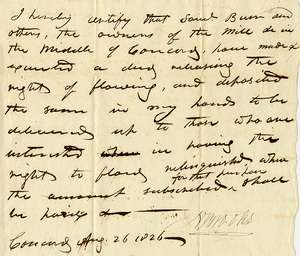 I hereby certify that Saml Burr and
others, the owners of the Mill &c in
the Middle of Concord, have made &
executed a deed releasing the
right of flowing, and deposited
the same in my hands to be
delivered up to those who are
interested in having the
right to flow relinquished, when
for that purpose
the amount subscribed shall
be paid
N Brooks
Concord Aug. 26 1826